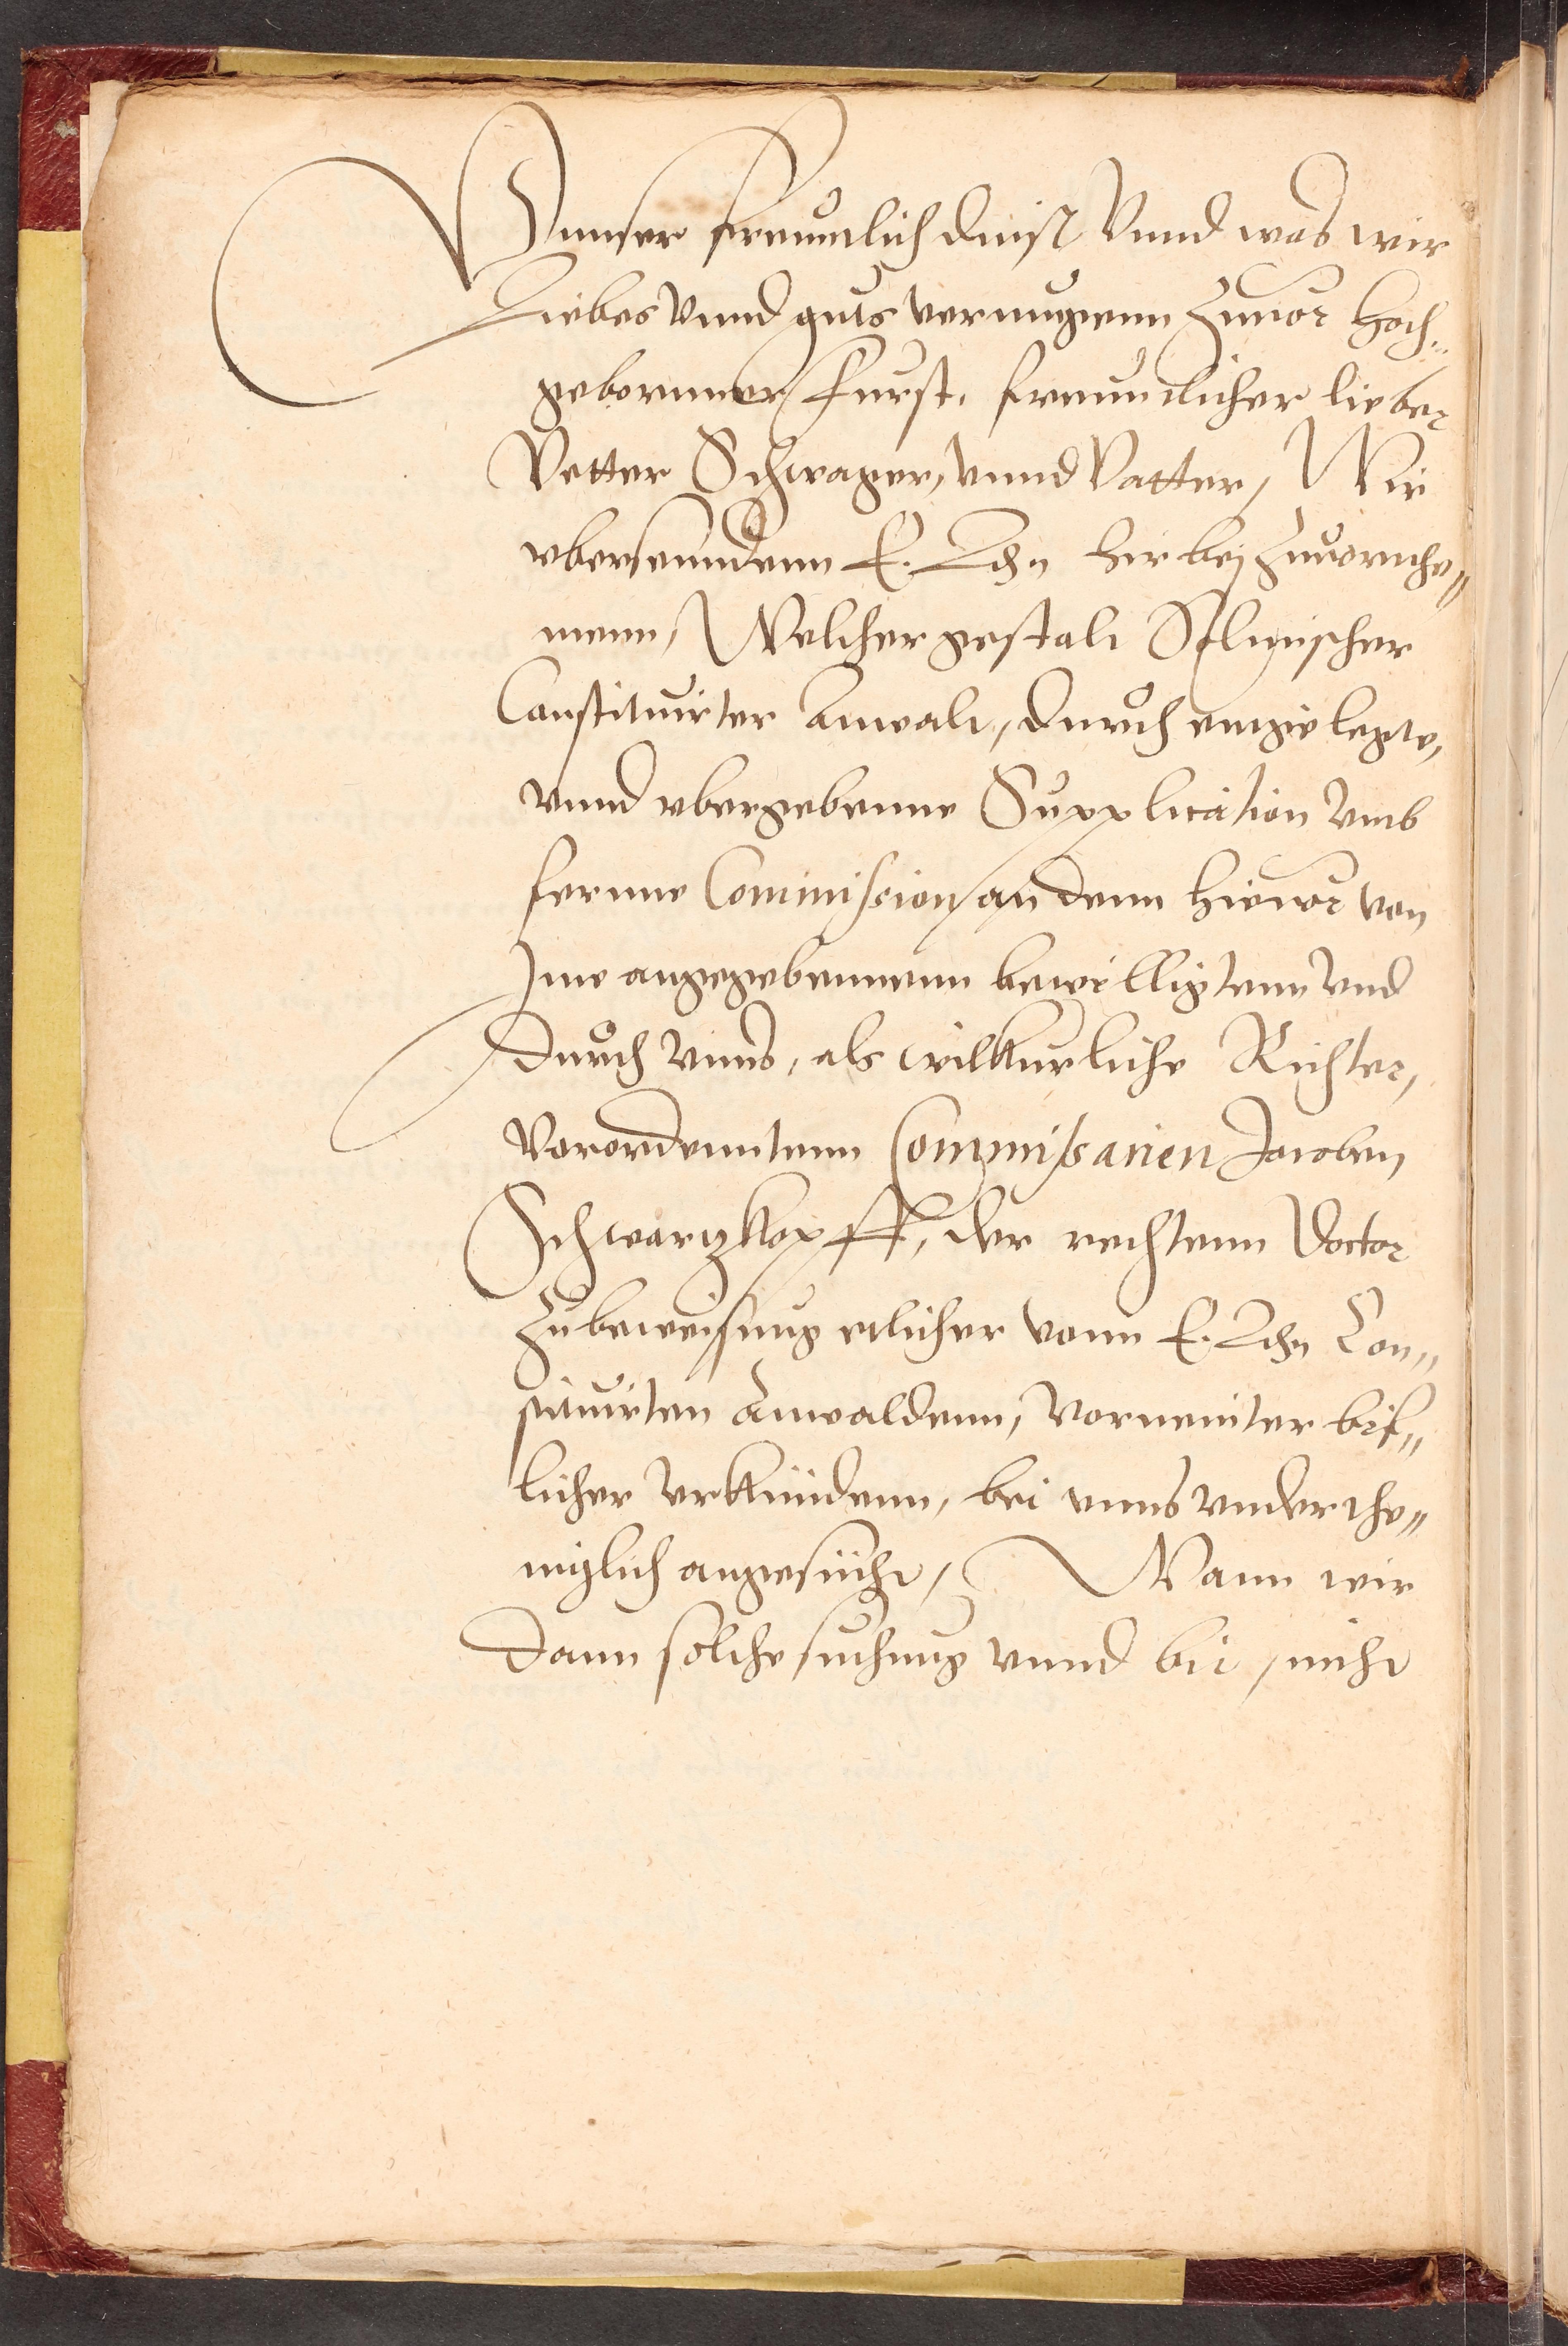 Vnnser freuntlich dinst Vnnd was wir
Liebes Vnnd guts vermugenn Zuuor Hoch¬
gebornner Furst. freuntlicher lieber
Vetter Schwager, vnnd Vatter, Wir
vbersenndenn E. L. hir bej Zuuornehe¬
menn, Welcher gestalt Solmischer
Constituirter Anwalt, durch eingelegte,
vnnd vbergebenne Supplication vmb
fernne Commission an denn hieuor von
Jme angegebennenn bewilligtenn vnd
durch vnns, als wilkurliche Richter,
Verordenntenn Commissarien Jacoben
Schwartzkopff, der rechtenn Doctor
Zubeweisung etlicher vonn E. L. Con¬
stituirten Anwaldenn, Vorneinter brif¬
licher vrkundenn, bei vnns vnderthe¬
niglich angesucht, Wann wir
dann solche suchung vnnd bit, nicht